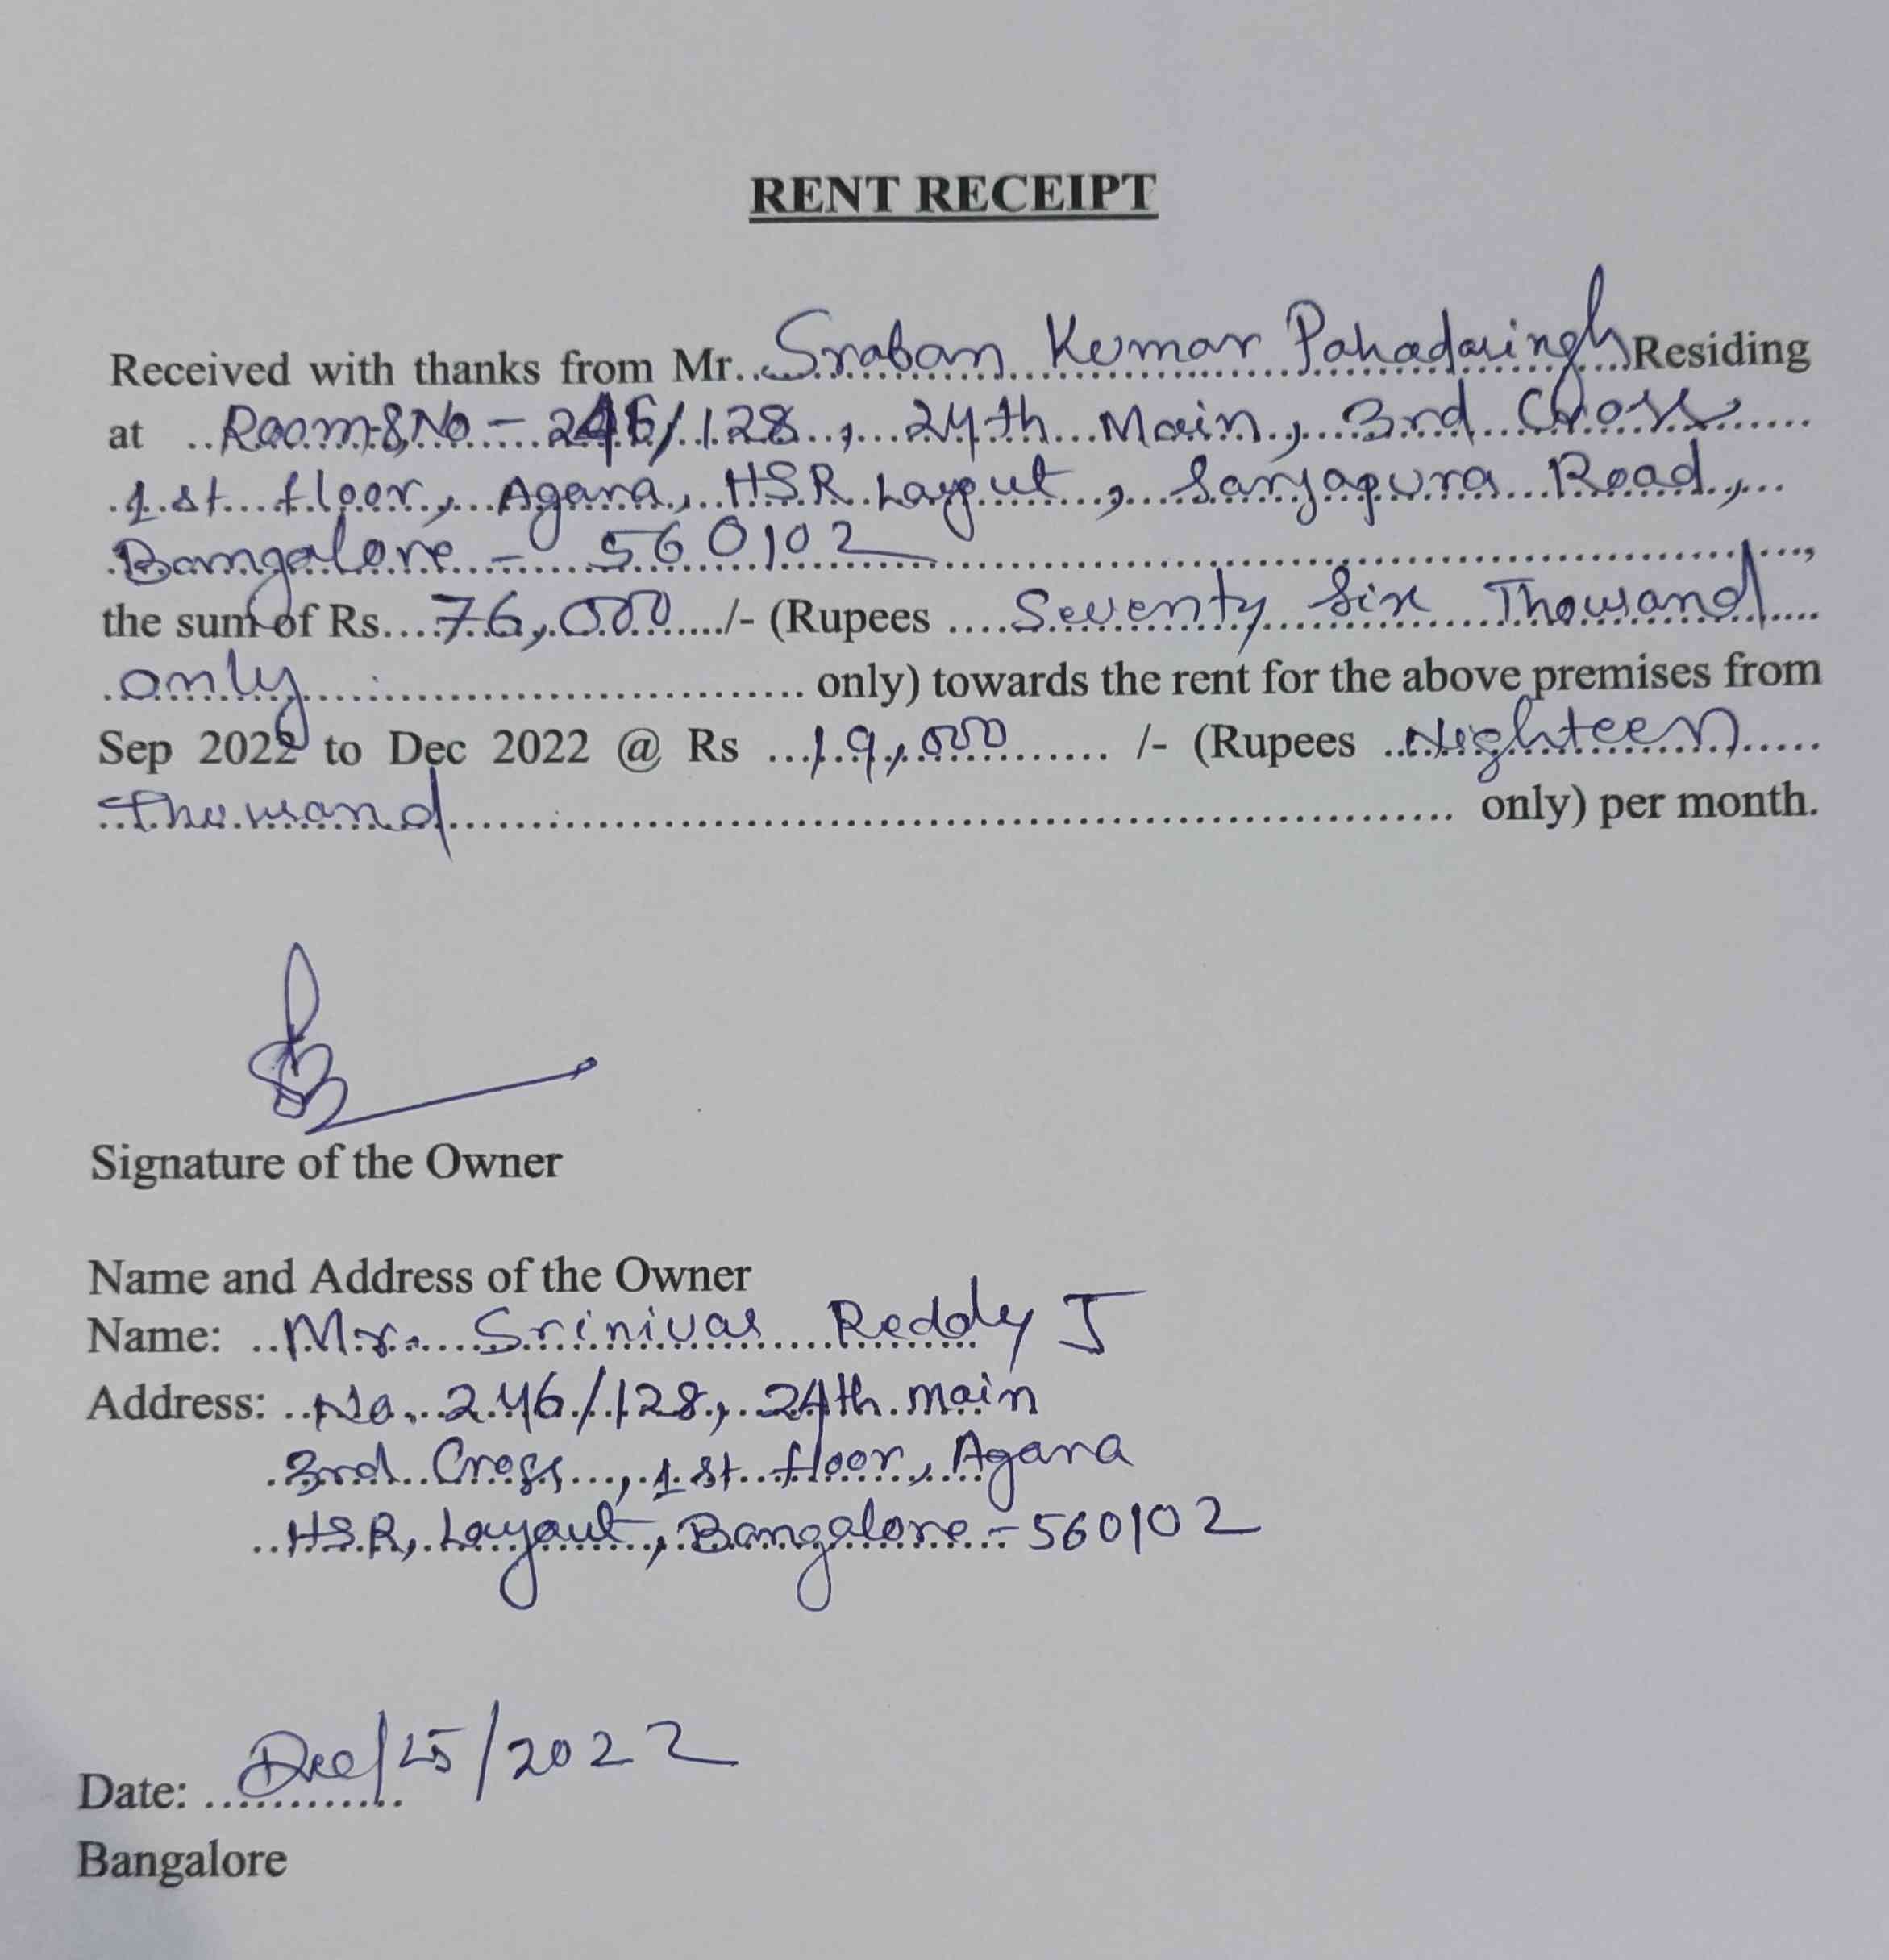 RENT RECEIPT
Received with thanks from Mr. Sraban Kumar Pahadasingh Residing
at Room No - 246/128, 24th Main, 3rd Cross
1st floor, Agara, HSR Layout, Sarjapura Road,
Bangalore - 560102,
the sum of Rs. 76,000 /- (Rupees Seventy Six Thousand
only only) towards the rent for the above premises from
Sep 2022 to Dec 2022 @ Rs 19,000 /- (Rupees Nighteen
Thousand only) per month.
Signature of the Owner
Name and Address of the Owner
Name: Mr. Srinivas Reddy J
Address: No. 246/128, 24th main
3rd Cross, 1st floor, Agara
HSR, Layout, Bangalore - 560102
Date: Dec/25/2022
Bangalore